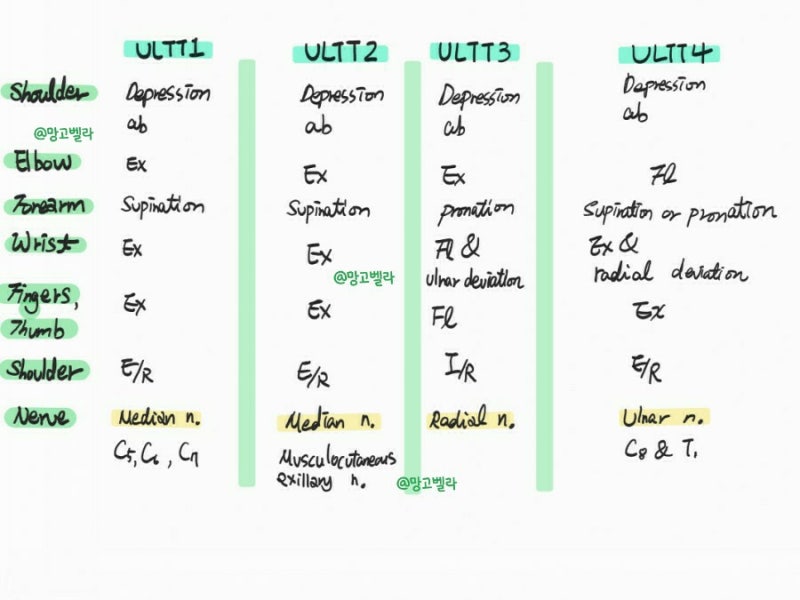 ULTT1 ULTT2 ULTT3 ULTT4
Shoulder Depression Depression Depression Depression
ab ab ab ab
@망고벨라
Elbow Ex Ex Ex Fl
Forearm Supination Supination pronation Supination or pronation
Wrist Ex Ex Fl & Ex &
@망고벨라 ulnar deviation radial deviation
Fingers, Ex Ex Fl Ex
Thumb
Shoulder E/R E/R I/R E/R
Nerve Median n. Median n. Radial n. Ulnar n.
C5, C6, C7 Musculocutaneous C8 & T1
axillary n. @망고벨라